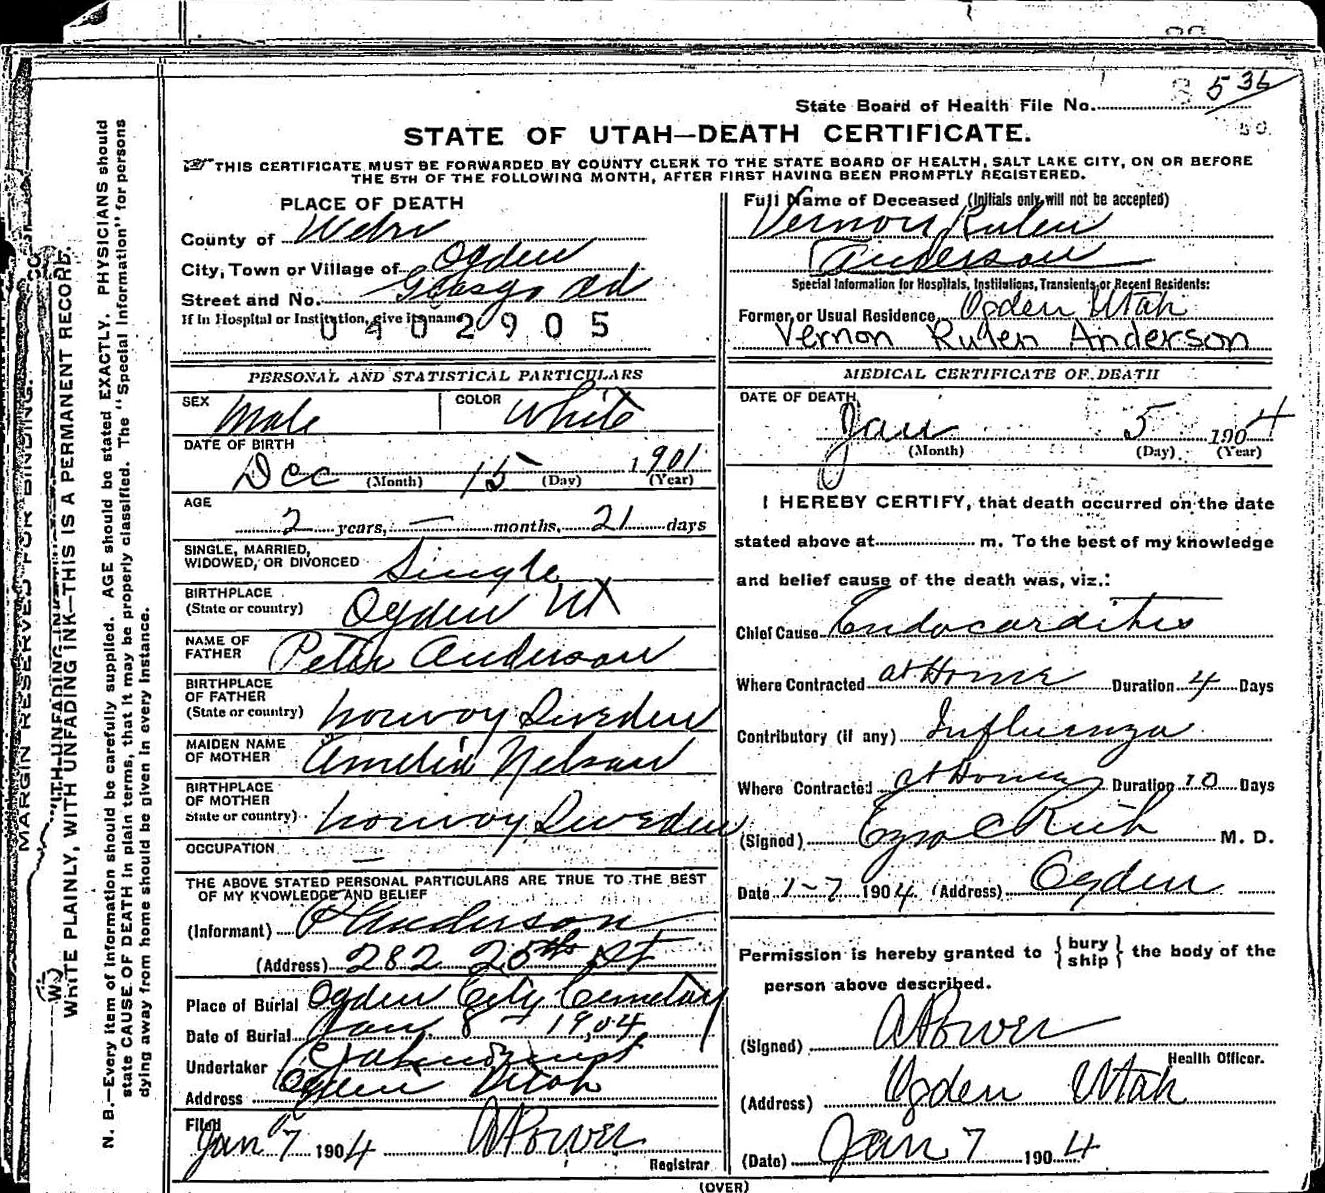 State Board of Health File No. 536
STATE OF UTAH—DEATH CERTIFICATE.
THIS CERTIFICATE MUST BE FORWARDED BY COUNTY CLERK TO THE STATE BOARD OF HEALTH, SALT LAKE CITY, ON OR BEFORE
THE 5TH OF THE FOLLOWING MONTH, AFTER FIRST HAVING BEEN PROMPTLY REGISTERED.
PLACE OF DEATH
County of Weber
City, Town or Village of Ogden
Street and No.
If in Hospital or Institution, give its name
0402905
Full Name of Deceased (Initials only will not be accepted)
Vernon Rulen
Anderson
Special Information for Hospitals, Institutions, Transients, or Recent Residents:
Former or Usual Residence Ogden Utah
Vernon Rulen Anderson
PERSONAL AND STATISTICAL PARTICULARS
SEX Male COLOR White
DATE OF BIRTH
Dec 15 1901
(Month) (Day) (Year)
AGE
2 years, — months, 21 days
SINGLE, MARRIED,
WIDOWED, OR DIVORCED Single
BIRTHPLACE
(State or country) Ogden Ut
NAME OF
FATHER Peter Anderson
BIRTHPLACE
OF FATHER
(State or country) Norway Sweden
MAIDEN NAME
OF MOTHER Amelia Nelson
BIRTHPLACE
OF MOTHER
State or country) Norway, Sweden
OCCUPATION —
THE ABOVE STATED PERSONAL PARTICULARS ARE TRUE TO THE BEST
OF MY KNOWLEDGE AND BELIEF
(Informant) P Anderson
(Address) 282 20th St
Place of Burial Ogden City Cemetary
Date of Burial Jan 8 - 1904
Undertaker
Address Ogden Utah
Filed
Jan 7 1904 A Power
Registrar
MEDICAL CERTIFICATE OF DEATH
DATE OF DEATH
Jan 5 1904
(Month) (Day) (Year)
I HEREBY CERTIFY, that death occurred on the date
stated above at m. To the best of my knowledge
and belief cause of the death was, viz.:
Chief Cause Endocarditis
Where Contracted at Home Duration 4 Days
Contributory (if any) Influenza
Where Contracted at Home Duration 10 Days
(Signed) Ezra C Rich M. D.
Date 1-7 1904 (Address) Ogden
Permission is hereby granted to { bury ship } the body of the
person above described.
(Signed) A Power
Health Officer.
(Address) Ogden Utah
(Date) Jan 7 1904
(OVER)
MARGIN RESERVED FOR BINDING.
WRITE PLAINLY, WITH UNFADING INK—THIS IS A PERMANENT RECORD.
N. B.—Every item of information should be carefully supplied. AGE should be stated EXACTLY. PHYSICIANS should
state CAUSE OF DEATH in plain terms, that it may be properly classified. The "Special Information" for persons
dying away from home should be given in every instance.